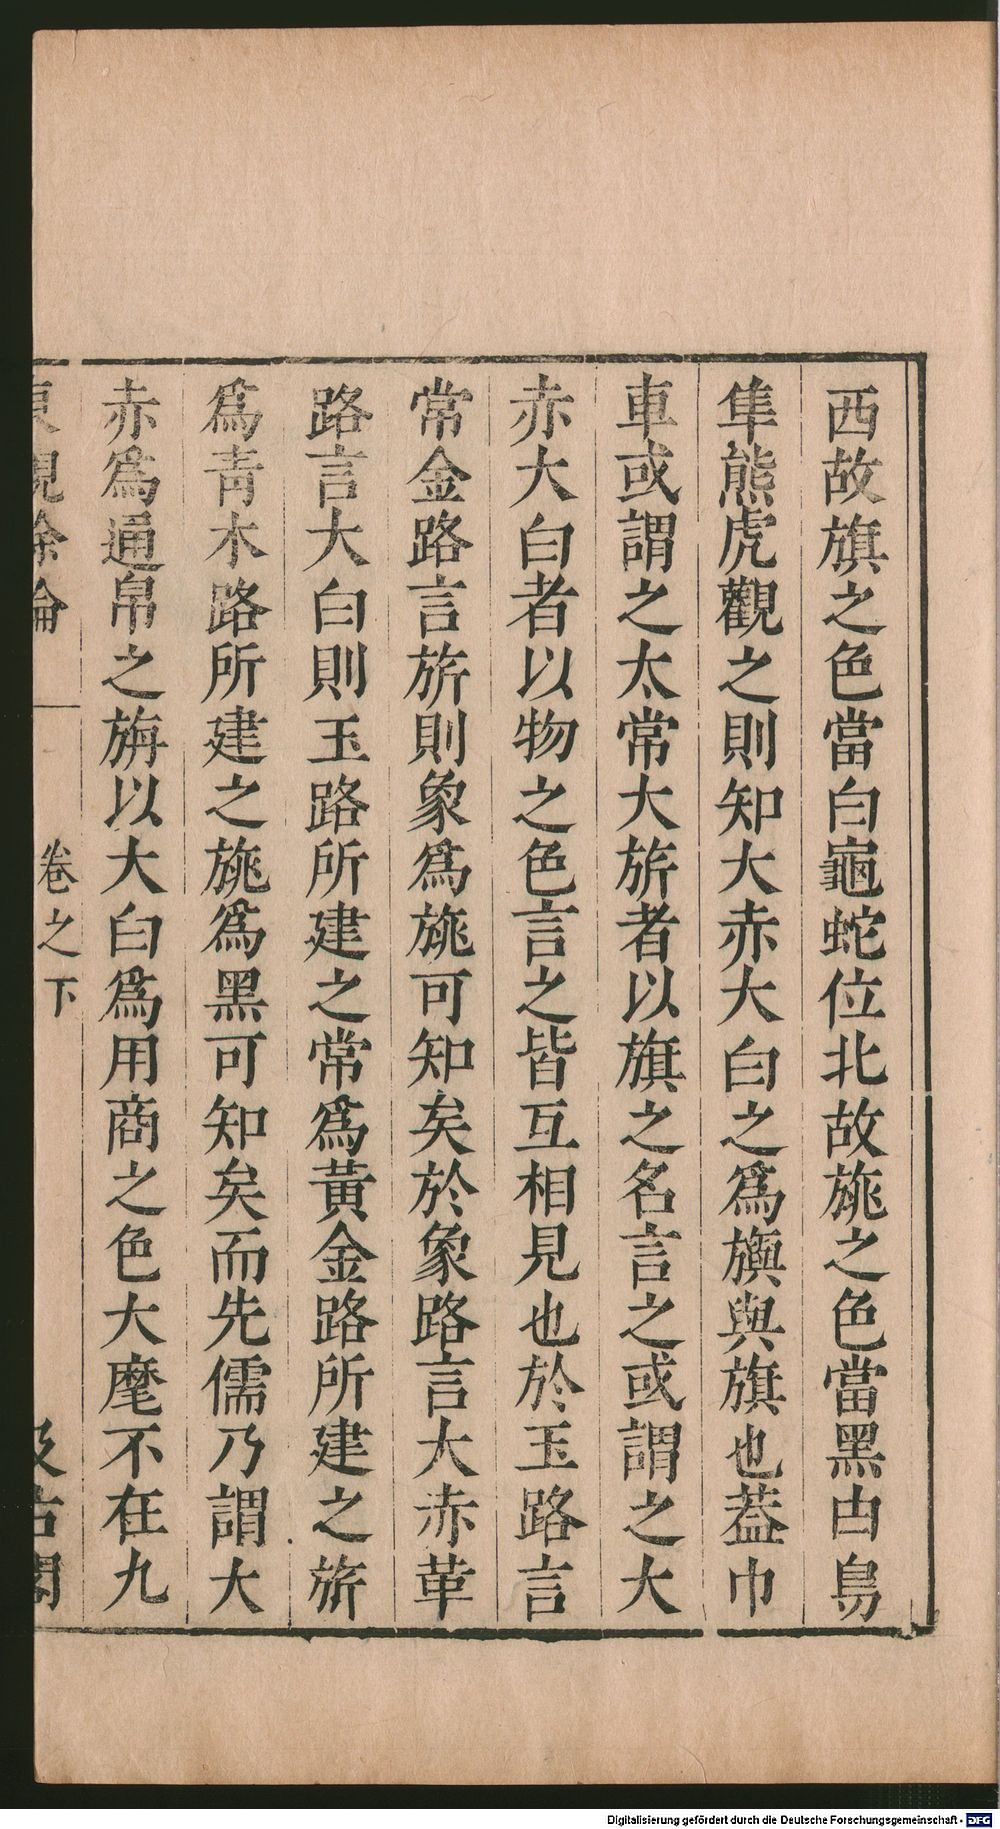 西故旗之色當白龜蛇位北故旐之色當黑由鳥
隼熊虎觀之則知大赤大白之爲旟與旗也葢巾
車或謂之太常大旂者以旗之名言之或謂之大
赤大白者以物之色言之皆互相見也於玉路言
常金路言旂則象爲旐可知矣於象路言大赤革
路言大白則玉路所建之常爲黃金路所建之旂
爲靑木路所建之旐爲黑可知矣而先儒乃謂大
赤爲通帛之旃以大白爲用商之色大麾不在九
東觀餘論
卷之下
汲古閣
Digitalisierung gefördert durch die Deutsche Forschungsgemeinschaft - DFG